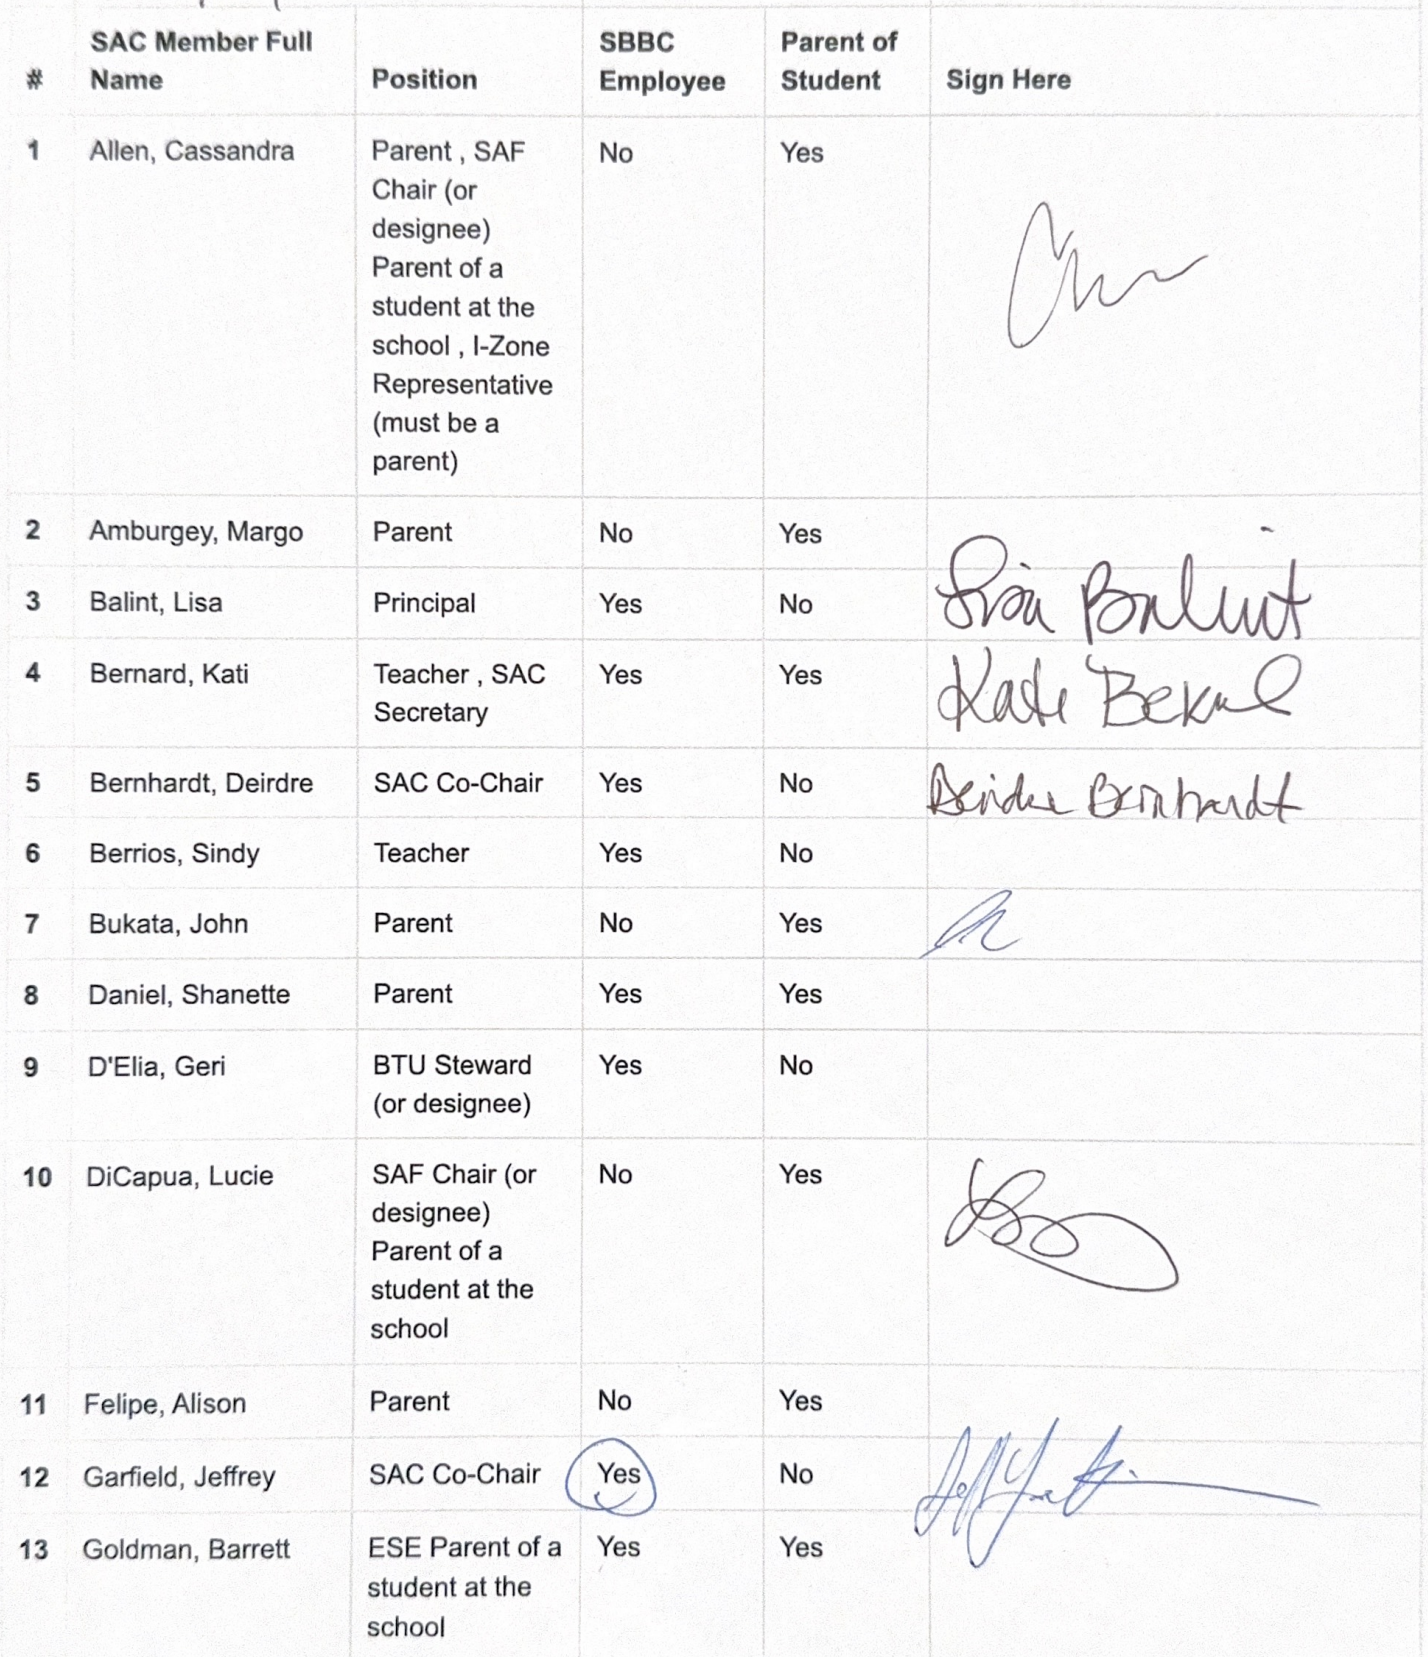 # SAC Member Full Name Position SBBC Employee Parent of Student Sign Here
1 Allen, Cassandra Parent , SAF No Yes
Chair (or
designee)
Parent of a
student at the
school , I-Zone
Representative
(must be a
parent)
2 Amburgey, Margo Parent No Yes
3 Balint, Lisa Principal Yes No Lisa Balint
4 Bernard, Kati Teacher , SAC Yes Yes Kati
Secretary
5 Bernhardt, Deirdre SAC Co-Chair Yes No Deirdre Bernhardt
6 Berrios, Sindy Teacher Yes No
7 Bukata, John Parent No Yes
8 Daniel, Shanette Parent Yes Yes
9 D'Elia, Geri BTU Steward Yes No
(or designee)
10 DiCapua, Lucie SAF Chair (or No Yes
designee)
Parent of a
student at the
school
11 Felipe, Alison Parent No Yes
12 Garfield, Jeffrey SAC Co-Chair Yes No
13 Goldman, Barrett ESE Parent of a Yes Yes
student at the
school